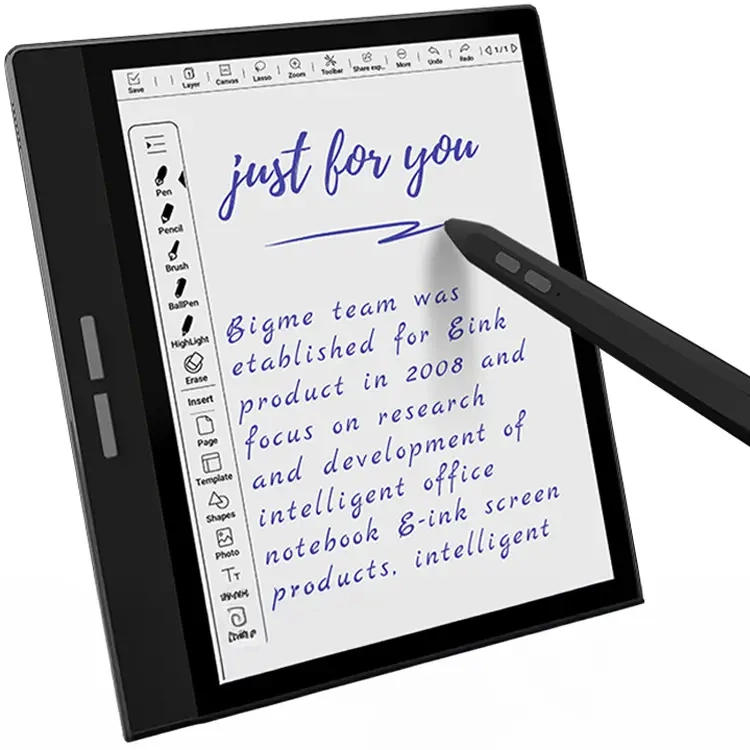 Save
Layer
Canvas
Lasso
Zoom
Toolbar
Share exp...
More
Undo
Redo
1/1
Pen
Pencil
Brush
BallPen
HighLight
Erase
Insert
Page
Template
Shapes
Photo
Tт
just for you
Bigme team was
etablished for Eink
product in 2008 and
focus on research
and development of
intelligent office
notebook E-ink screen
products, intelligent